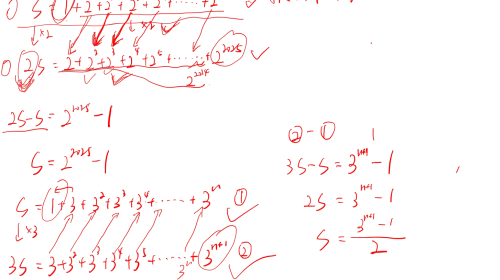 ① S=1+2+2²+2³+2⁴+⋯⋯+2
↓×2
② 2S=2+2²+2³+2⁴+2⁵+⋯⋯+2²⁰²⁵
2²⁰²⁴
2S-S=2²⁰²⁵-1
S=2²⁰²⁵-1
S=1+3+3²+3³+3⁴+⋯⋯+3ⁿ ①
↓×3
3S=3+3²+3³+3⁴+3⁵+⋯⋯3ⁿ+3ⁿ⁺¹ ②
②-① 1
3S-S=3ⁿ⁺¹-1
2S=3ⁿ⁺¹-1
S=3ⁿ⁺¹-1
2